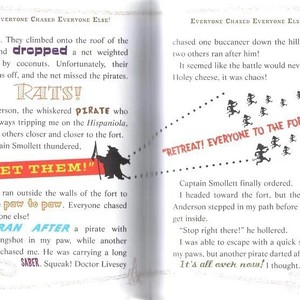 EVERYONE CHASED EVERYONE ELSE!
s. They climbed onto the roof of the
nd dropped a net weighted
by coconuts. Unfortunately, their
as off, and the net missed the pirates.
RATS!
erson, the whiskered PIRATE who
ways tripping me on the Hispaniola,
others closer and closer to the fort.
Captain Smollett thundered,
ET THEM!"
ran outside the walls of the fort to
paw to paw. Everyone chased
one else!
RAN AFTER a pirate with
ngshot in my paw, while another
chased me. He was carrying a long
SABER. Squeak! Doctor Livesey
EVERYONE CHASED EVERYONE ELSE
chased one buccaneer down the hill
two others ran after him!
It seemed like the battle would neve
Holey cheese, it was chaos!
"RETREAT! EVERYONE TO THE FOR
Captain Smollett finally ordered.
I headed toward the fort, but the
Anderson stepped in my path before
get inside.
"Stop right there!" he hollered.
I was able to escape with a quick s
my paws, but another pirate darted af
It's all over now! I thought.